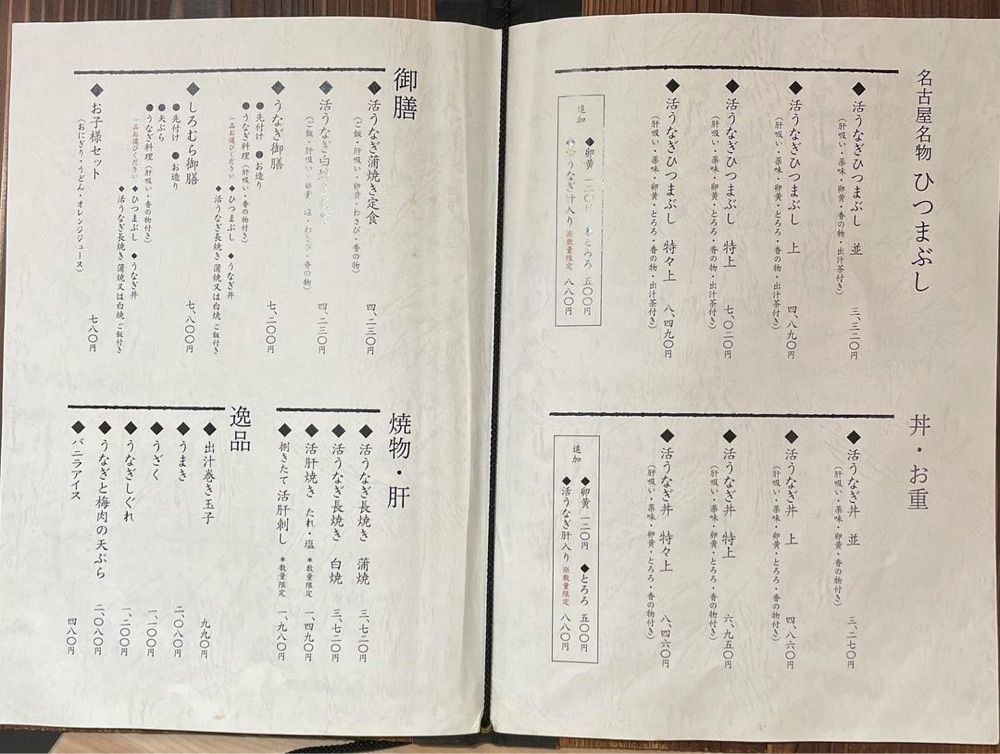 名古屋名物 ひつまぶし
◆活うなぎひつまぶし 並 三、三二〇円
（肝吸い・薬味・卵黄・香の物・出汁茶付き）
◆活うなぎひつまぶし 上 四、八九〇円
（肝吸い・薬味・卵黄・とろろ・香の物・出汁茶付き）
◆活うなぎひつまぶし 特上 七、〇二〇円
（肝吸い・薬味・卵黄・とろろ・香の物・出汁茶付き）
◆活うなぎひつまぶし 特々上 八、四九〇円
（肝吸い・薬味・卵黄・とろろ・香の物・出汁茶付き）
追加
◆卵黄 一二〇円 ◆とろろ 五〇〇円
◆活うなぎ肝入り ※数量限定 八八〇円
丼・お重
◆活うなぎ丼 並 三、二七〇円
（肝吸い・薬味・卵黄・香の物付き）
◆活うなぎ丼 上 四、八六〇円
（肝吸い・薬味・卵黄・とろろ・香の物付き）
◆活うなぎ丼 特上 六、九五〇円
（肝吸い・薬味・卵黄・とろろ・香の物付き）
◆活うなぎ丼 特々上 八、四六〇円
（肝吸い・薬味・卵黄・とろろ・香の物付き）
追加
◆卵黄 一二〇円 ◆とろろ 五〇〇円
◆活うなぎ肝入り ※数量限定 八八〇円
御膳
◆活うなぎ蒲焼き定食 四、二三〇円
（ご飯・肝吸い・卵黄・わさび・香の物）
◆活うなぎ白 四、二三〇円
（ご飯・肝吸い・卵黄・塩・わさび・香の物）
◆うなぎ御膳 七、二〇〇円
●先付け ●お造り
●うなぎ料理（肝吸い・香の物付き）
一品お選びください ◆ひつまぶし ◆うなぎ丼
◆活うなぎ長焼き 蒲焼又は白焼 ご飯付き
◆しろむら御膳 七、八〇〇円
●先付け ●お造り
●天ぷら
●うなぎ料理（肝吸い・香の物付き）
一品お選びください ◆ひつまぶし ◆うなぎ丼
◆活うなぎ長焼き 蒲焼又は白焼 ご飯付き
◆お子様セット 七八〇円
（おにぎり・うどん・オレンジジュース）
焼物・肝
◆活うなぎ長焼き 蒲焼 三、七二〇円
◆活うなぎ長焼き 白焼 三、七二〇円
◆活肝焼き たれ・塩 *数量限定 一、四九〇円
◆捌きたて 活肝刺し *数量限定 一、九八〇円
逸品
◆出汁巻き玉子 九九〇円
◆うまき 二、〇八〇円
◆うざく 一、一〇〇円
◆うなぎしぐれ 一、二〇〇円
◆うなぎと梅肉の天ぷら 二、〇八〇円
◆バニラアイス 四八〇円